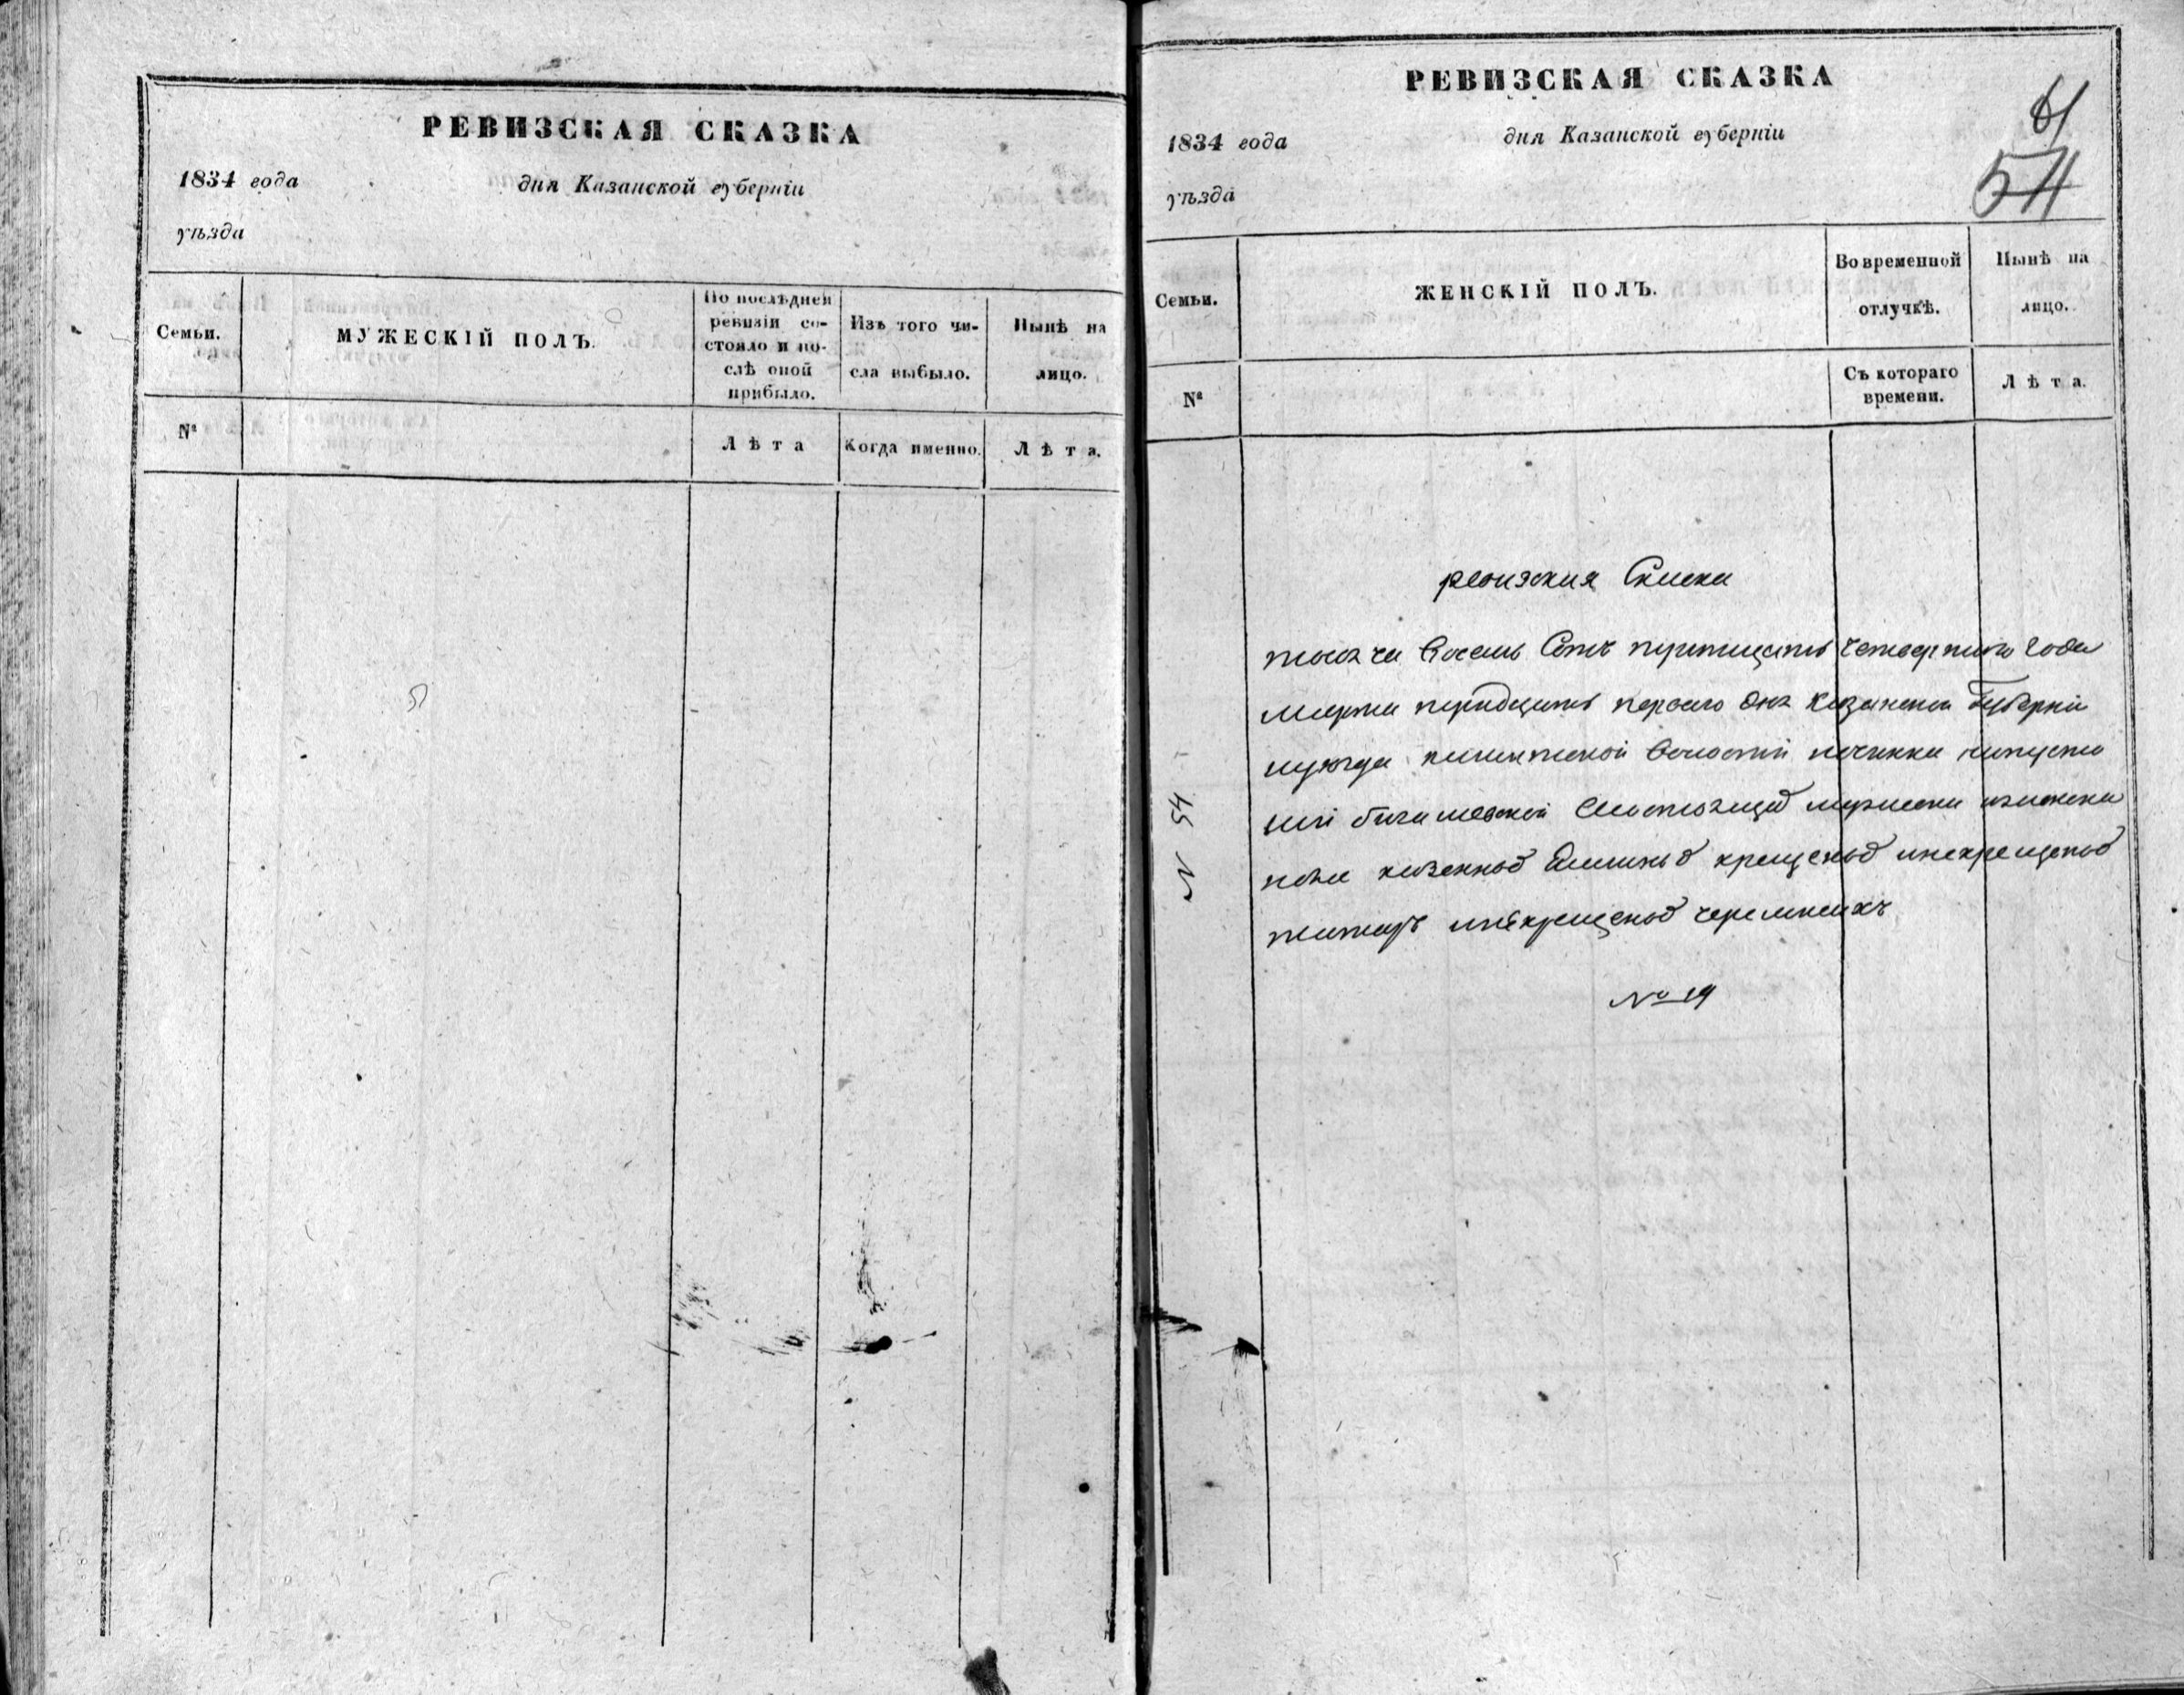 РЕВИЗСКАЯ СКАЗКА
1834 года дня Казанской губерніи
уѣзда
Семьи.
МУЖЕСКІЙ ПОЛЪ.
По послѣдней ревизіи состояло и послѣ оной прибыло.
Изъ того числа выбыло.
Нынѣ на лицо.
№
Лѣта
Когда именно.
Лѣта.
РЕВИЗСКАЯ СКАЗКА
61
1834 года дня Казанской губерніи
54
уѣзда
Семьи.
ЖЕНСКІЙ ПОЛЪ.
Во временной отлучкѣ.
Нынѣ на лицо.
№
Съ котораго времени.
Лѣта.
ревизская Скаска
тысяча Восемь Сотъ тритцать четвертаго Года
Марта тритцать перваго дня Казанской Губерніи
Волости починка
мужеска иженска
пола казенныхъ крещеныхъ инекрещеныхъ
татаръ инекрещеныхъ черемисъ
№ 19
N 54